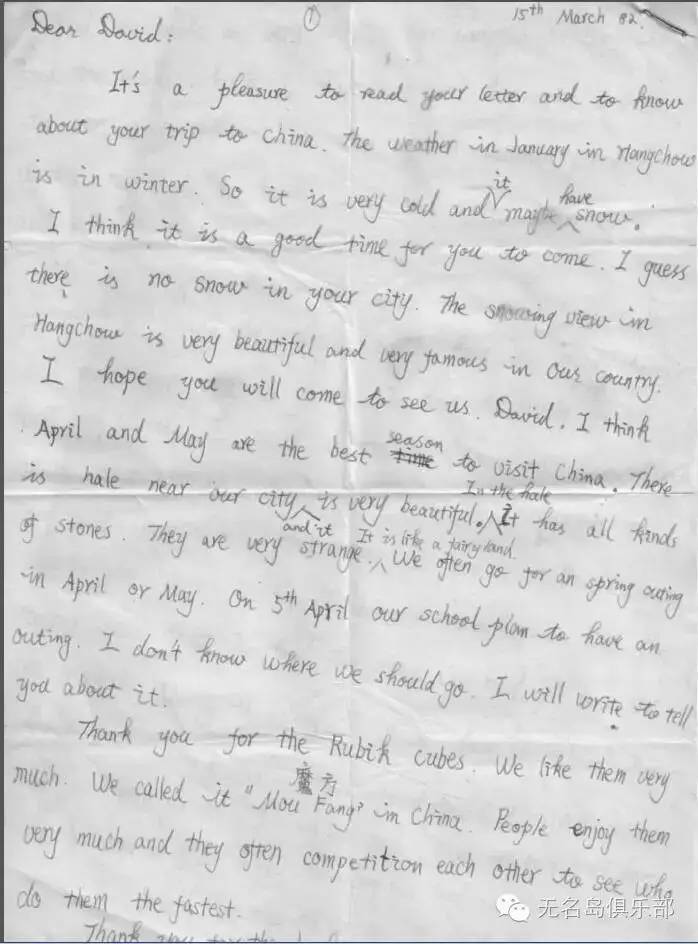 ① 15th March 82.
Dear David:
It's a pleasure to read your letter and to know
about your trip to China. The weather in January in Hangchow
is in winter. So it is very cold and it maybe have snow.
I think it is a good time for you to come. I guess
there is no snow in your city. The snowing view in
Hangchow is very beautiful and very famous in our country.
I hope you will come to see us. David. I think
April and May are the best season to visit China. There
is hale near our city and it is very beautiful. In the hale It has all kinds
of stones. They are very strange. It is like a fairyland. We often go for an spring outing
in April or May. On 5th April our school plan to have an
outing. I don't know where we should go. I will write to tell
you about it.
Thank you for the Rubik cubes. We like them very
much. We called it "Mou Fang" 魔方 in China. People enjoy them
very much and they often competition each other to see who
do them the fastest.
Thank you for the
无名岛俱乐部